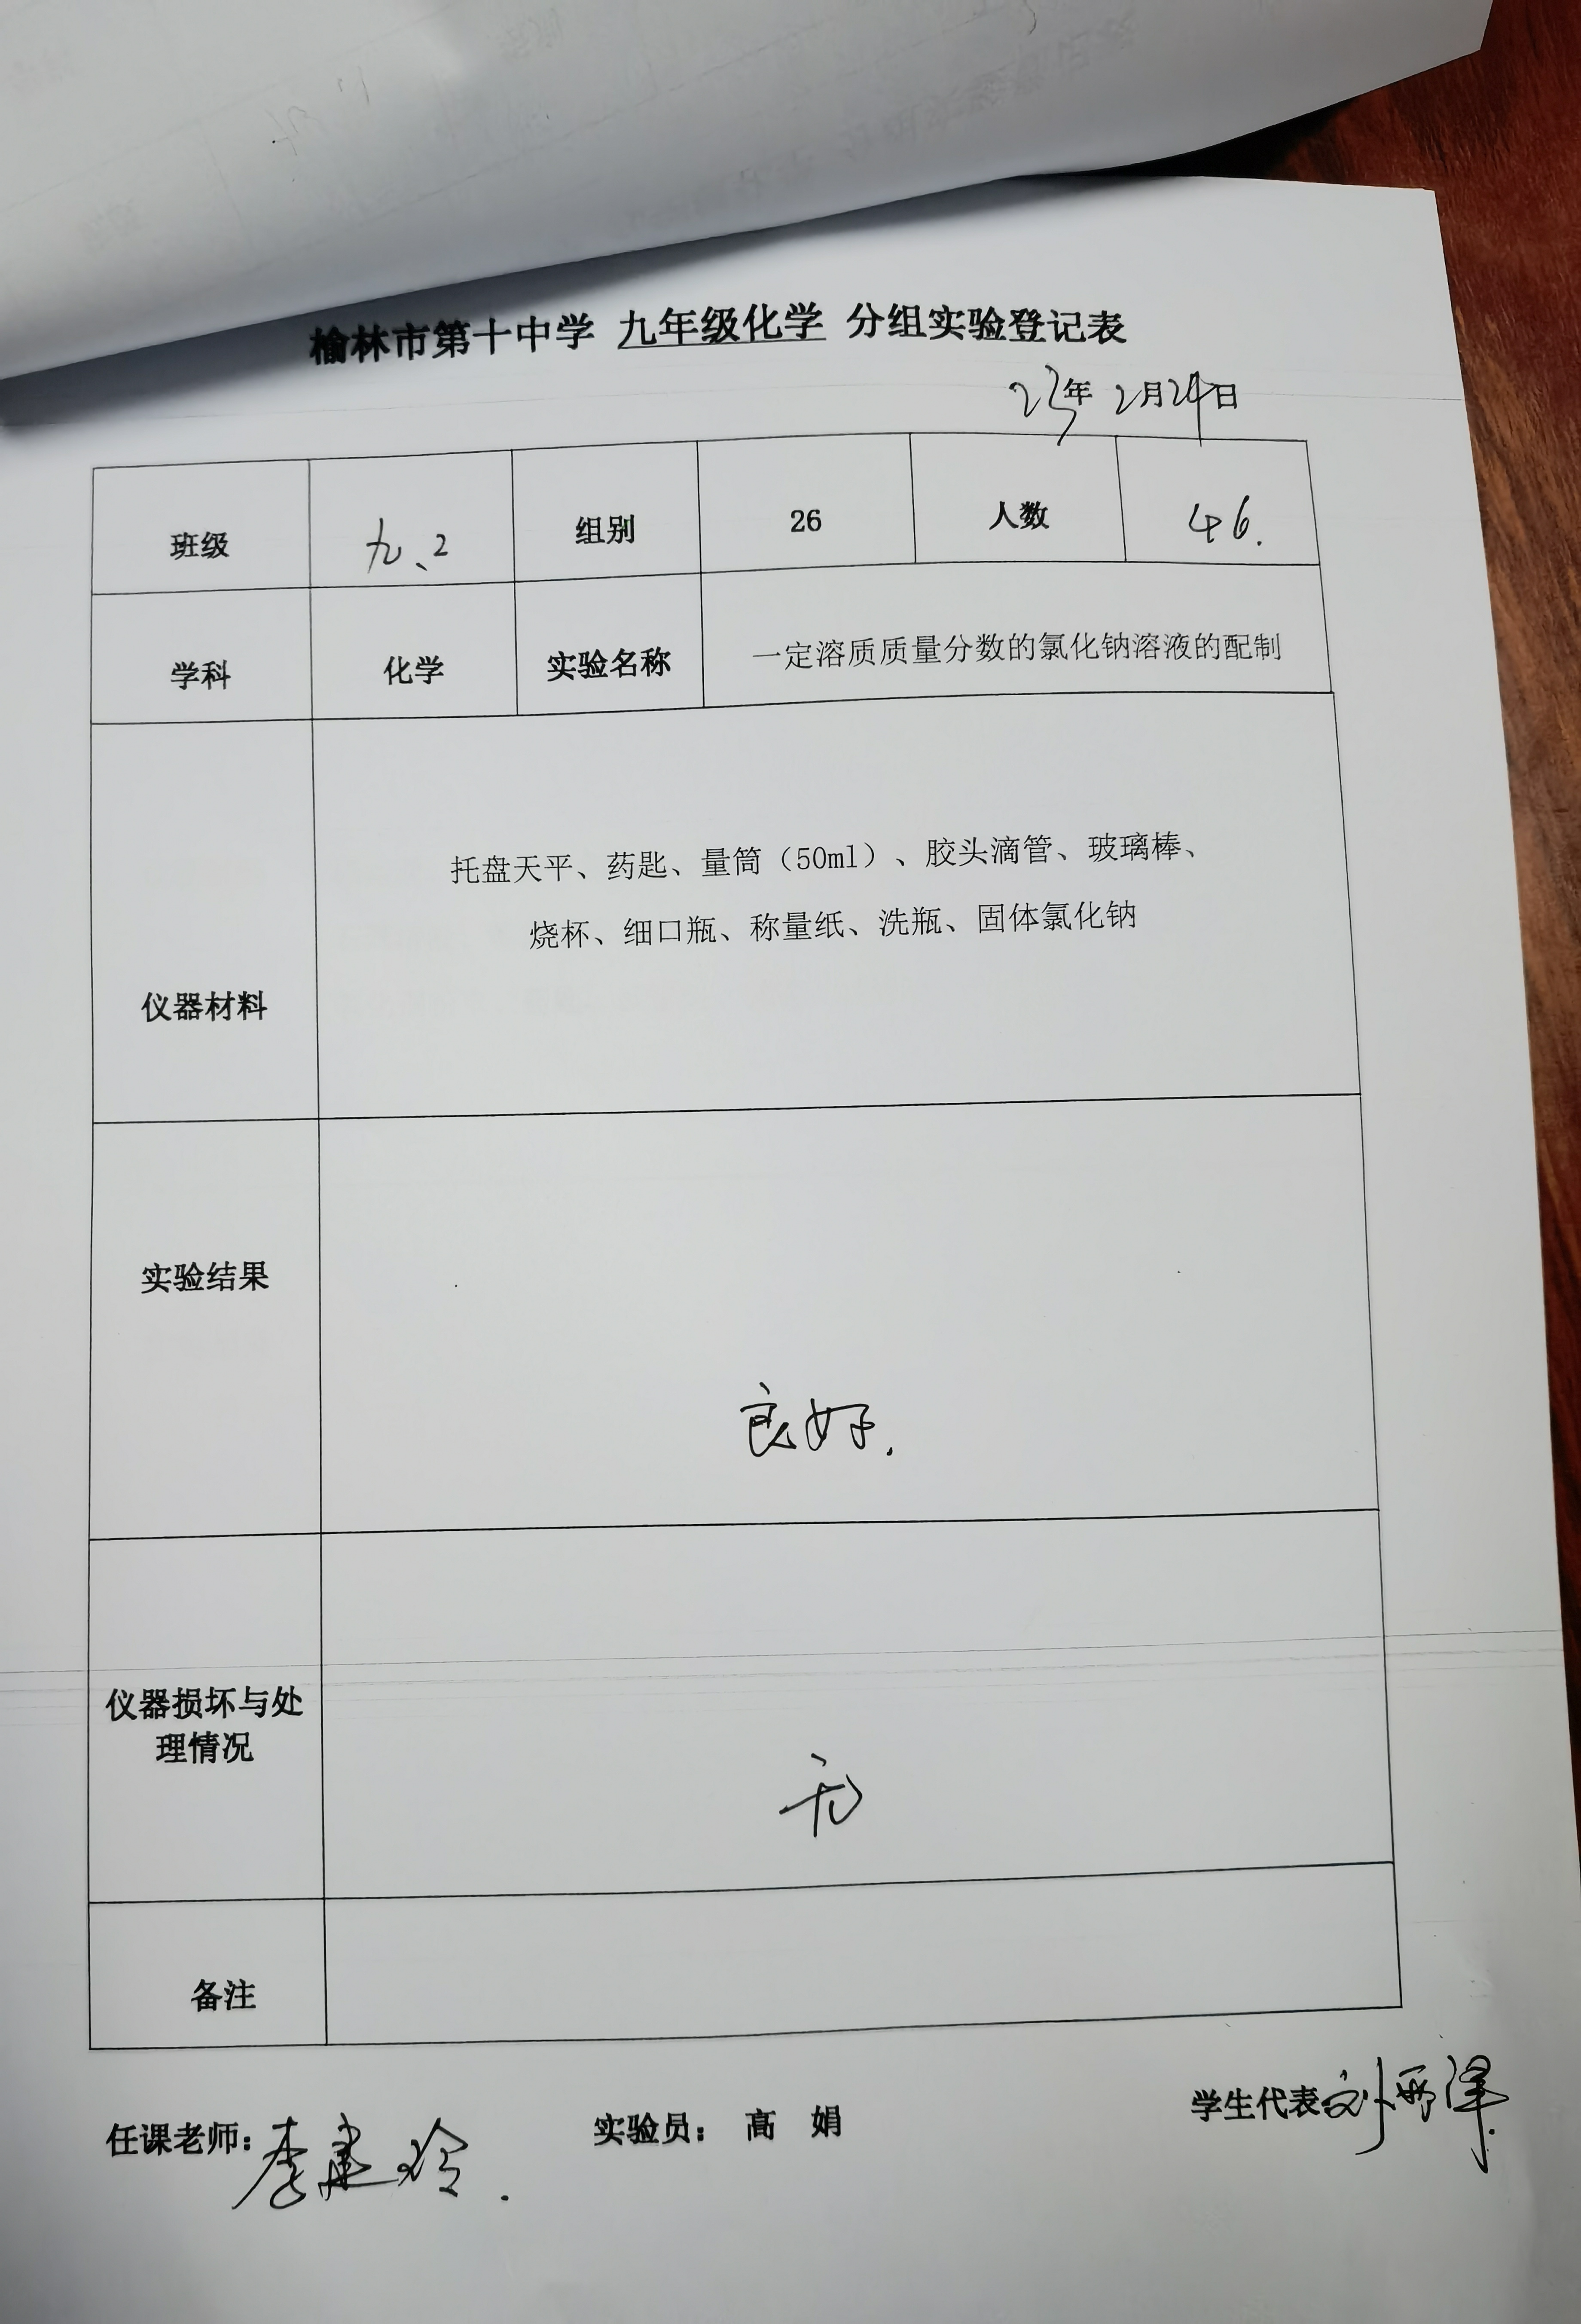 榆林市第十中学 九年级化学 分组实验登记表
23年 2月24日
班级 九、2 组别 26 人数 46.
学科 化学 实验名称 一定溶质质量分数的氯化钠溶液的配制
托盘天平、药匙、量筒（50ml）、胶头滴管、玻璃棒、
烧杯、细口瓶、称量纸、洗瓶、固体氯化钠
仪器材料
实验结果
良好.
仪器损坏与处
理情况
无
备注
任课老师：李建玲. 实验员： 高 娟 学生代表刘